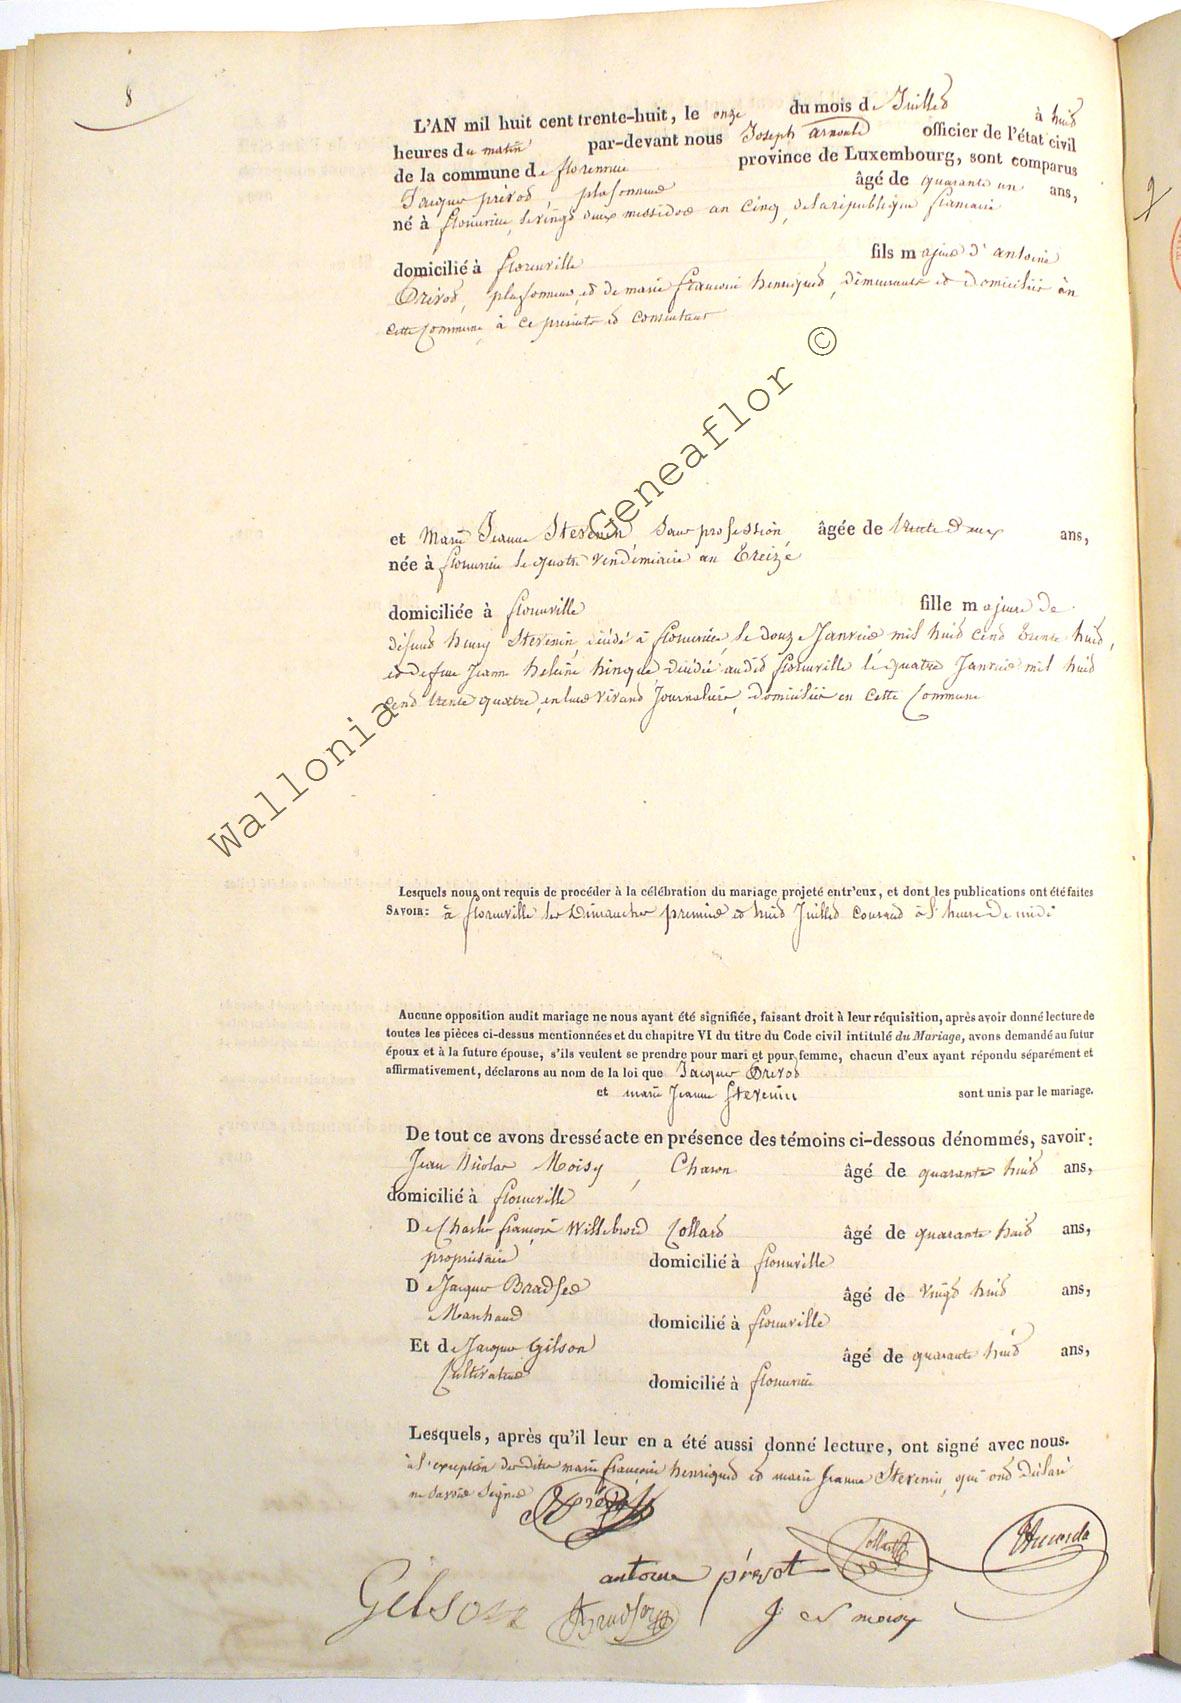 8
L'AN mil huit cent trente-huit, le onze du mois de Juillet à huit
heures du matin par-devant nous Joseph Arnould officier de l'état civil
de la commune de florenville province de Luxembourg, sont comparus
Jacques prévot, plafonneur âgé de quarante un ans,
né à florenville, le vingt deux messidor an cinq, de la république française
domicilié à florenville fils majeur d'antoine
Prévot, plafonneur, et de marie françoise henriquet, demeurants et domiciliés en
cette commune, à ce présents et consentant
et Marie Jeanne Stevenin Sans profession, âgée de trente deux ans,
née à florenville le quatre vendémiaire an treize
domiciliée à florenville fille majeure de
défunt henry Stevenin, décédé à florenville, le douze Janvier mil huit cent trente huit,
et defeue Jeanne heleine hinque décédée audit florenville le quatre Janvier mil huit
cent trente quatre, en leur vivant Journaliers, domiciliés en cette Commune
Lesquels nous ont requis de procéder à la célébration du mariage projeté entr'eux, et dont les publications ont été faites
SAVOIR: à florenville les Dimanches premier et huit Juillet courant à l'heure de midi
Aucune opposition audit mariage ne nous ayant été signifiée, faisant droit à leur réquisition, après avoir donné lecture de
toutes les pièces ci-dessus mentionnées et du chapitre VI du titre du Code civil intitulé du Mariage, avons demandé au futur
époux et à la future épouse, s'ils veulent se prendre pour mari et pour femme, chacun d'eux ayant répondu séparément et
affirmativement, déclarons au nom de la loi que Jacques Prevot
et marie Jeanne Stevenin sont unis par le mariage.
De tout ce avons dressé acte en présence des témoins ci-dessous dénommés, savoir:
Jean Nicolas Moisy, Charon âgé de quarante huit ans,
domicilié à florenville
De Charles françois Willebrord Collard âgé de quarante huit ans,
propriétaire domicilié à florenville
De Jacques Bradfer âgé de vingt huit ans,
Marchand domicilié à florenville
Et de Jacques Gilson âgé de quarante huit ans,
Cultivateur domicilié à florenville
Lesquels, après qu'il leur en a été aussi donné lecture, ont signé avec nous.
à l'exception desdites marie françoise henriquet et marie Jeanne Stevenin, qui ont déclaré
ne savoir signer
antoine prévot
Gelson
Bradfer
J N moisy
Wallonia Geneaflor ©